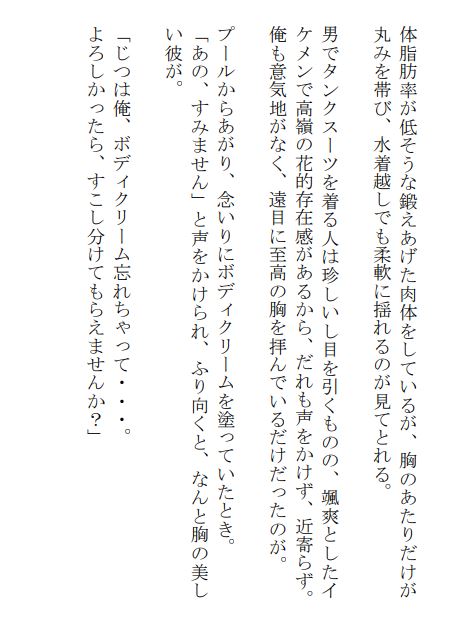 体脂肪率が低そうな鍛えあげた肉体をしているが、胸のあたりだけが
丸みを帯び、水着越しでも柔軟に揺れるのが見てとれる。
男でタンクスーツを着る人は珍しいし目を引くものの、颯爽としたイ
ケメンで高嶺の花的存在感があるから、だれも声をかけず、近寄らず。
俺も意気地がなく、遠目に至高の胸を拝んでいるだけだったのが。
プールからあがり、念いりにボディクリームを塗っていたとき。
「あの、すみません」と声をかけられ、ふり向くと、なんと胸の美し
い彼が。
「じつは俺、ボディクリーム忘れちゃって・・・。
よろしかったら、すこし分けてもらえませんか？」